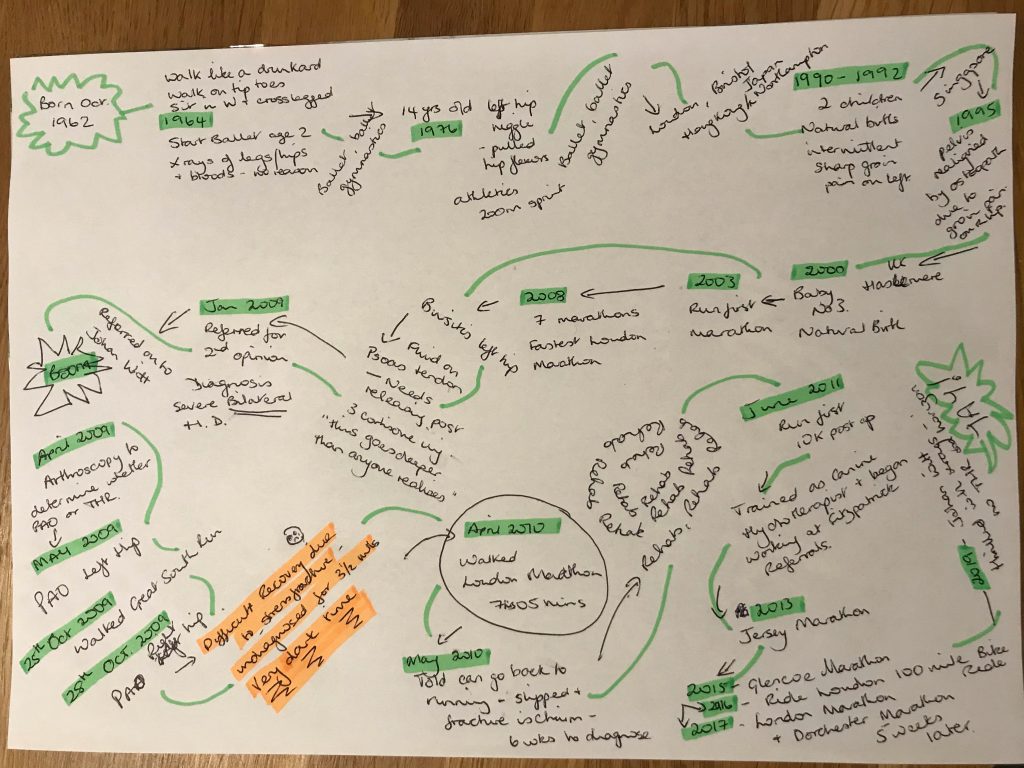 Born Oct.
1962
Walk like a drunkard
walk on tip toes
Sit in W + crosslegged
1964
Start Ballet age 2
X rays of legs/hips
+ bloods - no reason
Ballet, ballet
gymnastics
14 yrs old
1976
left hip
niggle
- pulled
hip flexors
athletics
200m sprint
Ballet, ballet
gymnastics
London, Bristol
Japan
Hong Kong Northampton
1990 - 1992
2 children
Natural births
intermittent
sharp groin
pain on left
Singapore
1995
pelvis
realigned
by osteopath
due to
groin pain
on R hip
UK
Haslemere
2000
Baby
No 3.
Natural Birth
2003
Run first
marathon
2008
7 marathons
Fastest London
Marathon
Bursitis left hip
Fluid on
Psoas tendon
- Needs
releasing post
3 cortisone inj -
"this goes deeper
than anyone realises"
Jan 2009
Referred for
2nd opinion
Diagnosis
Severe Bilateral
H. D.
Referred on to
Johan Witt
BOOM
April 2009
Arthroscopy to
determine whether
PAO or THR.
MAY 2009
PAO Left Hip
25th Oct 2009
Walked Great South Run
28th Oct. 2009
PAO Right hip
Difficult Recovery due
to stress fracture -
undiagnosed for 3 1/2 mths
Very dark time
April 2010
Walked
London Marathon
7hrs 05 mins
May 2010
Told can go back to
running - slipped +
fracture ischium -
6 wks to diagnose
Rehab, Rehab
Rehab Rehab
Rehab Rehab
Rehab Rehab
Rehab Rehab
Rehab
June 2011
Run first
10K post op
Trained as canine
Hydrotherapist + began
working at Fitzpatrick
Referrals.
2013
Jersey Marathon
2015 - Glencoe Marathon
2016 - Ride London 100 mile Bike
Ride
2017 - London Marathon
+ Dorchester Marathon
5 weeks
later.
2019
no THR
Johan Witt
YAY!